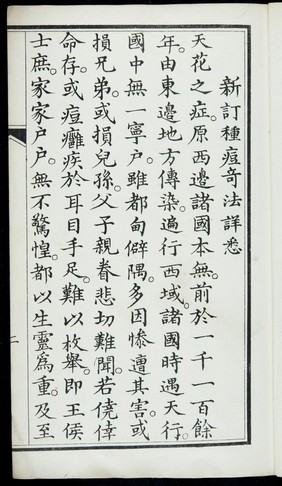 新訂種痘奇法詳悉
天花之症。原西邊諸國本無。前於一千一百餘
年。由東邊地方傳染。遍行西域。諸國時遇天行。
國中無一寧戶。雖都甸僻隅。多因慘遭其害。或
損兄弟。或損兒孫。父子親眷悲切難聞。若僥倖
命存。或痘癰疾於耳目手足。難以枚舉。即王侯
士庶。家家戶戶。無不驚惶。都以生靈為重。及至
二